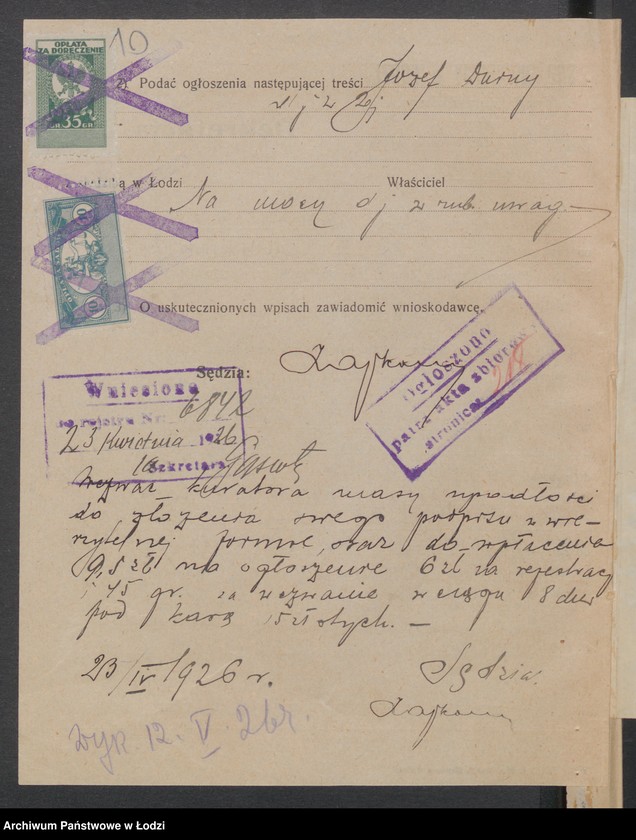 10
OPŁATA
ZA DORĘCZENIE
35 GR
2) Podać ogłoszenia następującej treści Józef Durny
w Łodzi Właściciel
Na mocy dj z rub. uwag. —
O uskutecznionych wpisach zawiadomić wnioskodawcę.
Sędzia:
Ogłoszono
patrz akta zbiorowe
stronica:
Wniesiono
do rejstru Nr. 6842
23 Kwietnia 1926
Sekretarz
Wezwać kuratora masy upadłości
do złożenia swego podpisu w wie-
rzytelnej formie, oraz do wpłacenia
9,5 zł na ogłoszenie 6 zł za rejestrację
i 45 gr. za wezwanie w ciągu 8 dni
pod karą 5 złotych. —
23/IV 1926 r.
Sędzia
wyk. 12. V. 26 r.
Archiwum Państwowe w Łodzi